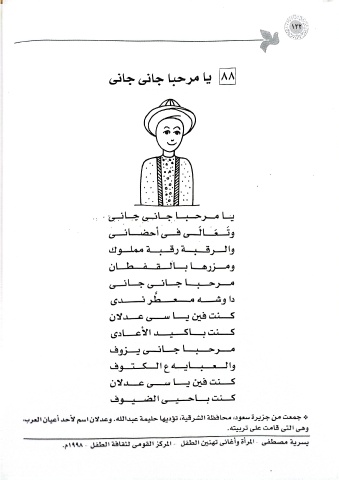 ١٢٤
٨٨ يا مرحبا جانى جانى
يا مرحبا جانى جانى
وتَعَالَى فى أحضانى
والرقبة رقبة مملوك
ومزرها بالقفطان
مرحبا جانى جانى
دا وشه معطَّر ندى
كنت فين يا سى عدلان
كنت باكيد الأعادى
مرحبا جانى يزوف
والعبايه ع الكتوف
كنت فين يا سى عدلان
كنت باحيى الضيوف
* جمعت من جزيرة سعود، محافظة الشرقية، تؤديها حليمة عبدالله. وعدلان اسم لأحد أعيان العرب،
وهى التى قامت على تربيته.
يسرية مصطفى - المرأة وأغانى تهنين الطفل - المركز القومى لثقافة الطفل - ١٩٩٨م.